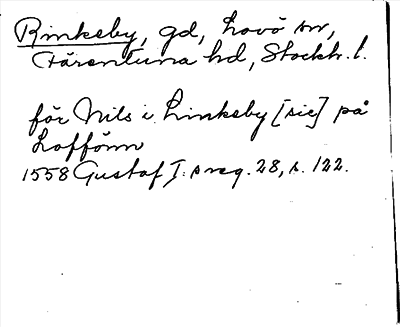 Rinkeby, gd, Lovö sn,
Färentuna hd, Stockh. l.
för Nils i Linkeby [sic] på
Lofförnn
1558 Gustaf I:s reg. 28, s. 122.